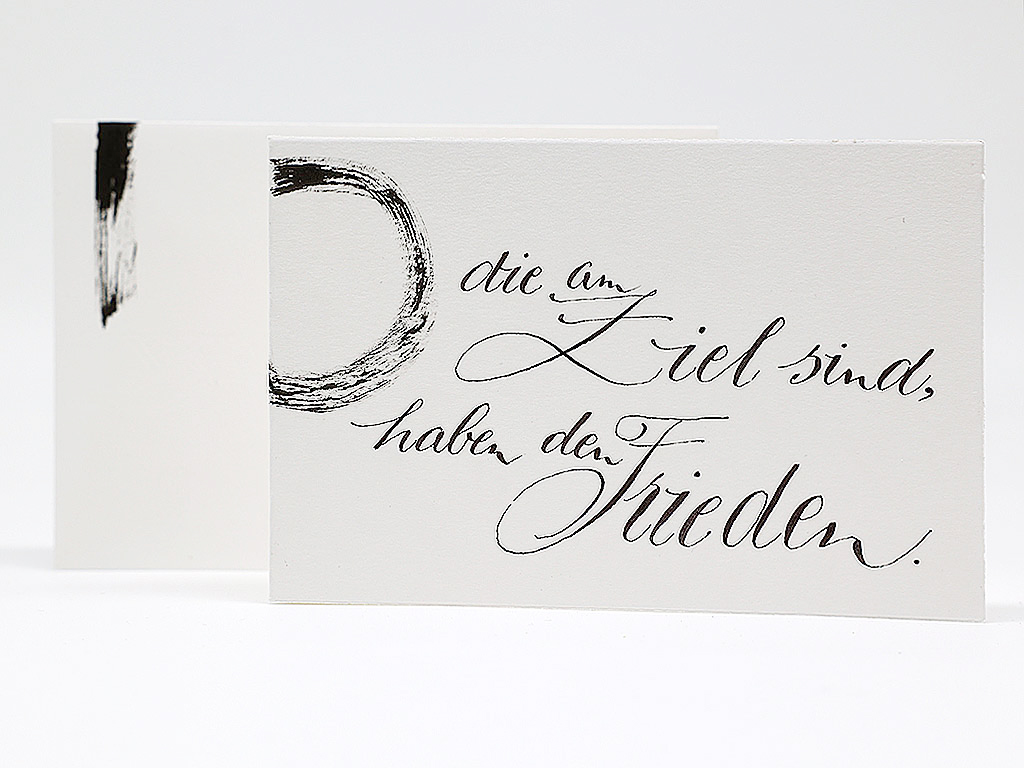 die am
Ziel sind,
haben den
Frieden.